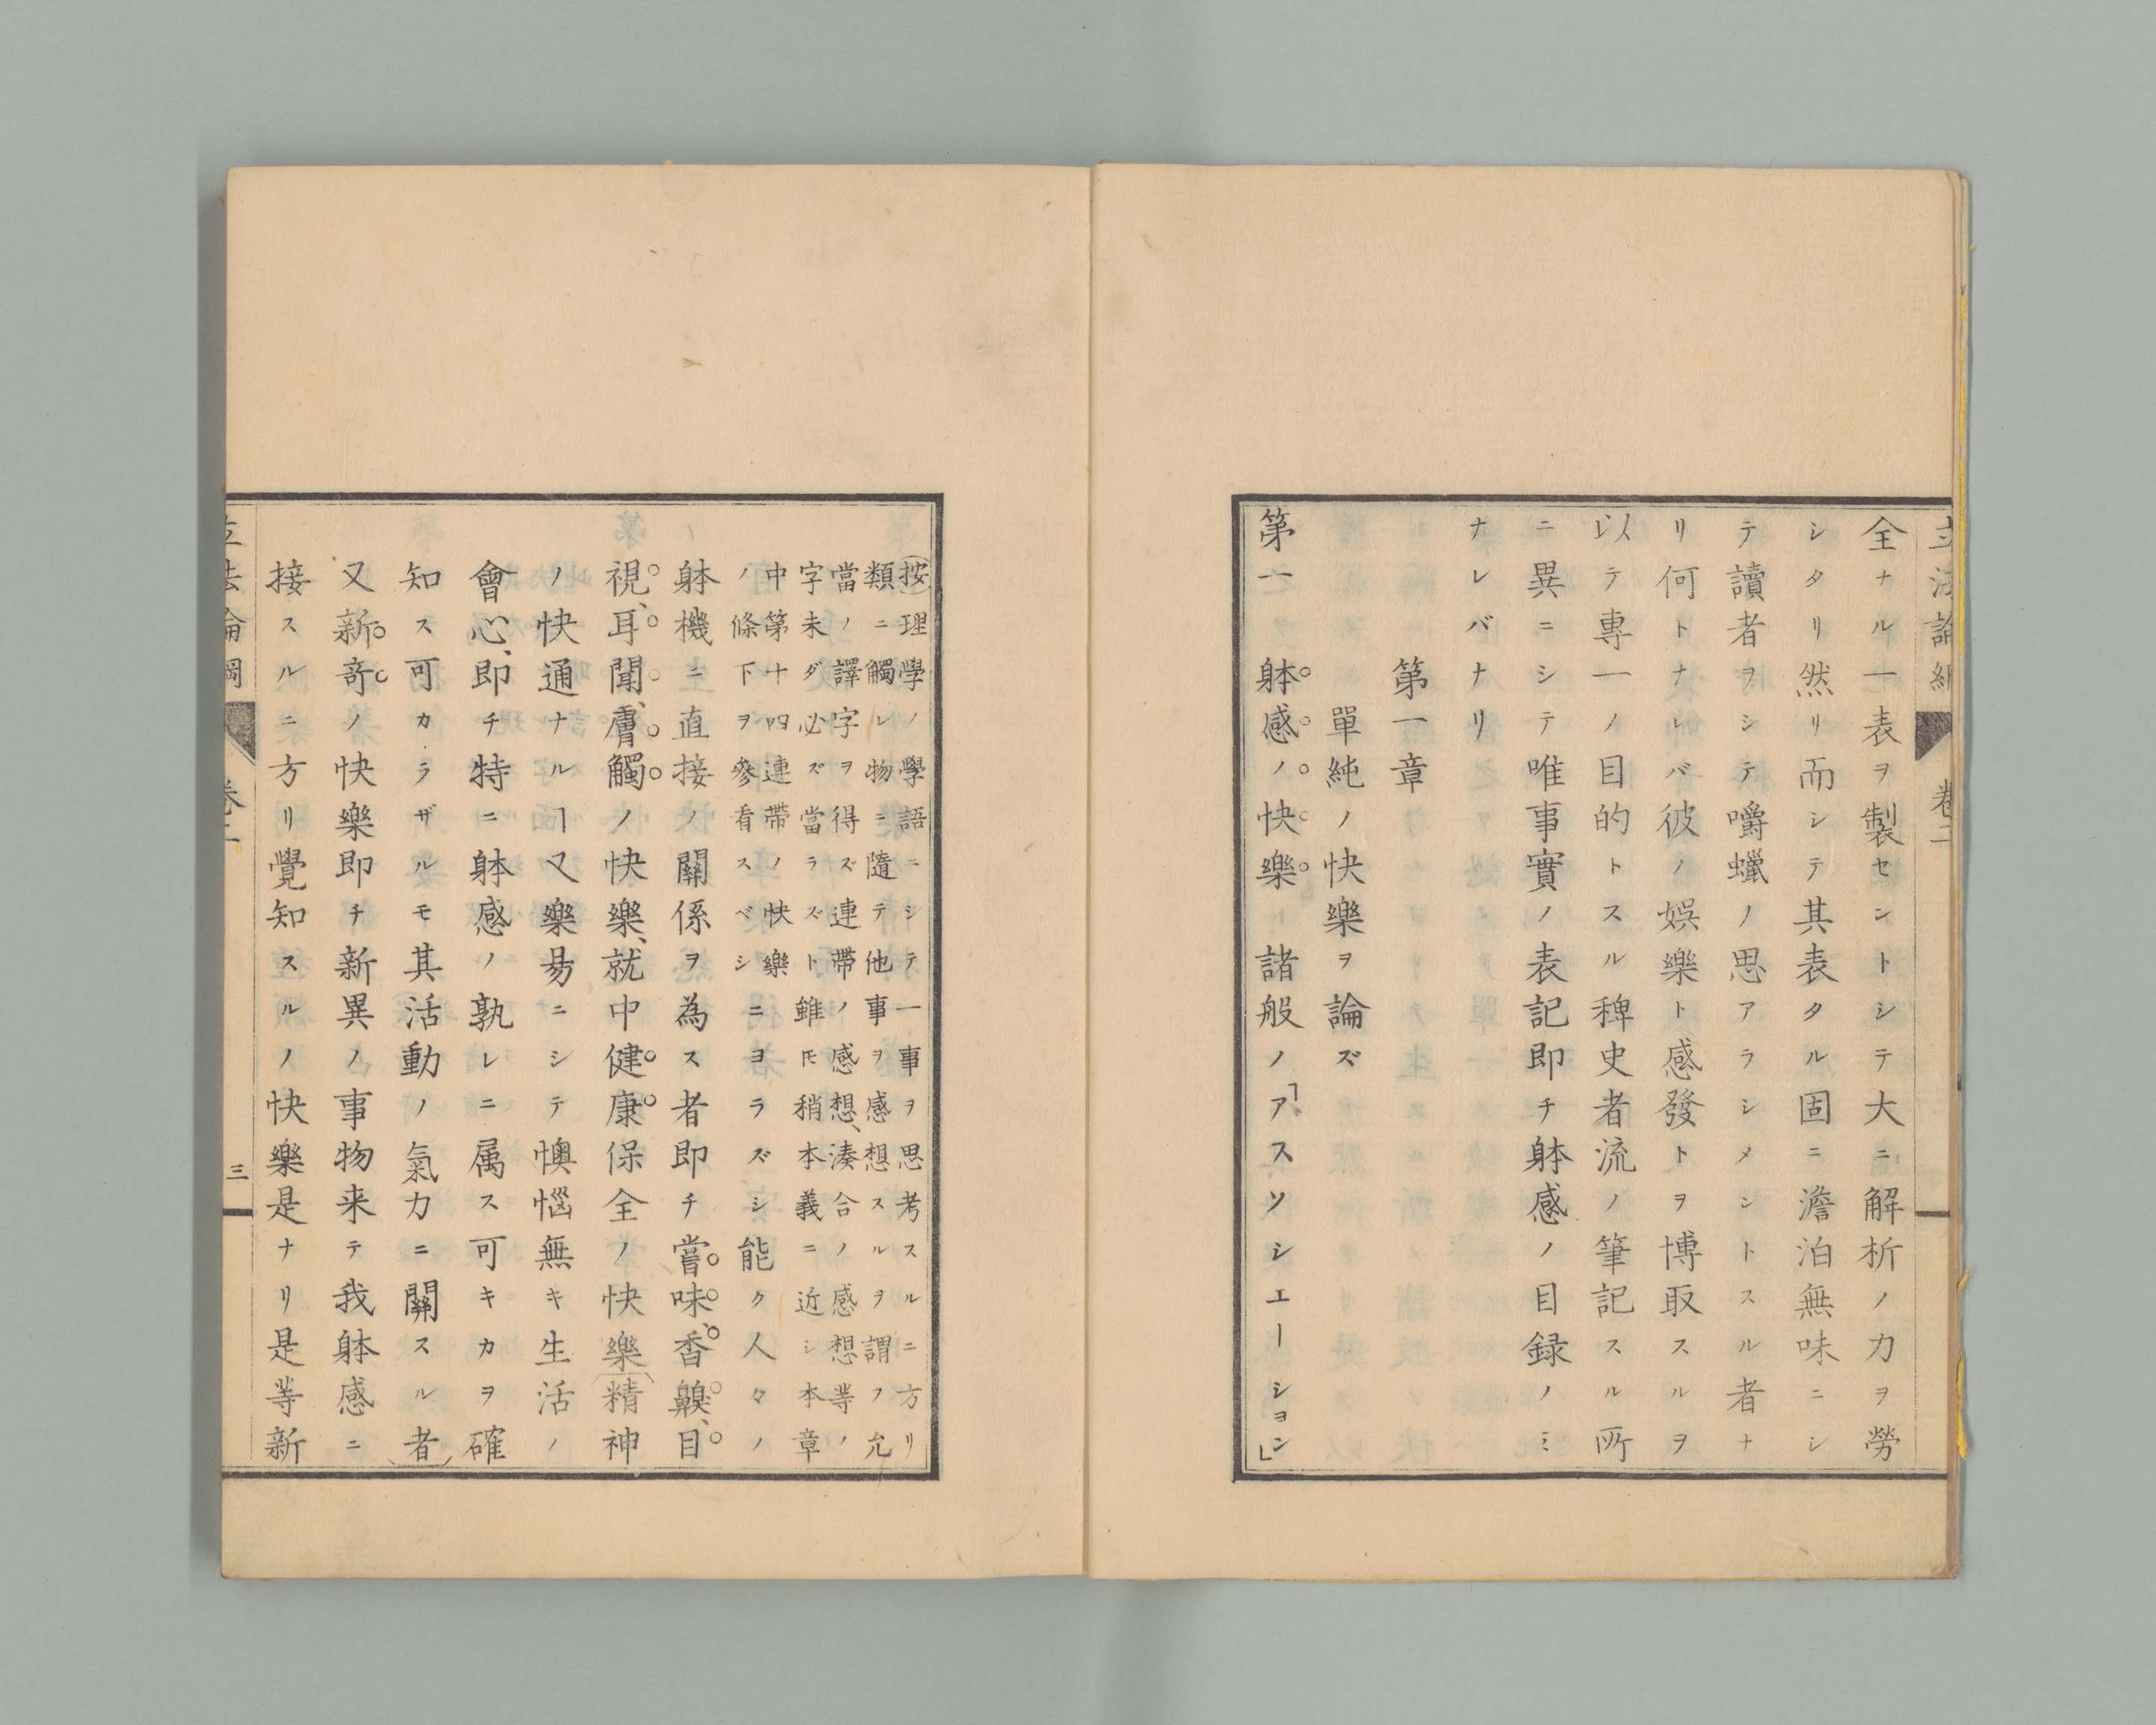 立法論綱 卷二
全ナル一表ヲ製セントシテ大ニ解析ノ力ヲ勞
シタリ然リ而シテ其表タル固ニ澹泊無味ニシ
テ讀者ヲシテ嚼蠟ノ思アラシメントスル者ナ
リ何トナレバ彼ノ娯樂ト感發トヲ博取スルヲ
以テ專一ノ目的トスル稗史者流ノ筆記スル所
ニ異ニシテ唯事實ノ表記即チ躰感ノ目録ノミ
ナレバナリ
第一章
單純ノ快樂ヲ論ズ
第一 躰感ノ快樂 諸般ノ「アスソシエーション」
(按)理學ノ學語ニシテ一事ヲ思考スルニ方リ
類ニ觸レ物ニ隨テ他事ヲ感想スルヲ謂フ允
當ノ譯字ヲ得ズ連帶ノ感想、湊合ノ感想等ノ
字未ダ必ズ當ラズト雖モ稍本義ニ近シ本章
中第十四連帶ノ快樂
ノ條下ヲ參看スベシ ニヨラズシ能ク人々ノ
躰機ニ直接ノ關係ヲ為ス者即チ嘗味、香齅、目
視、耳聞、膚觸ノ快樂、就中健康保全ノ快樂(精神
ノ快通ナルヿ又樂易ニシテ懊惱無キ生活ノ
會心、即チ特ニ躰感ノ孰レニ属ス可キカヲ確
知ス可カラザルモ其活動ノ氣力ニ關スル者)
又新竒ノ快樂即チ新異ノ事物来テ我躰感ニ
接スルニ方リ覺知スルノ快樂是ナリ是等新
立法論綱 卷二 三